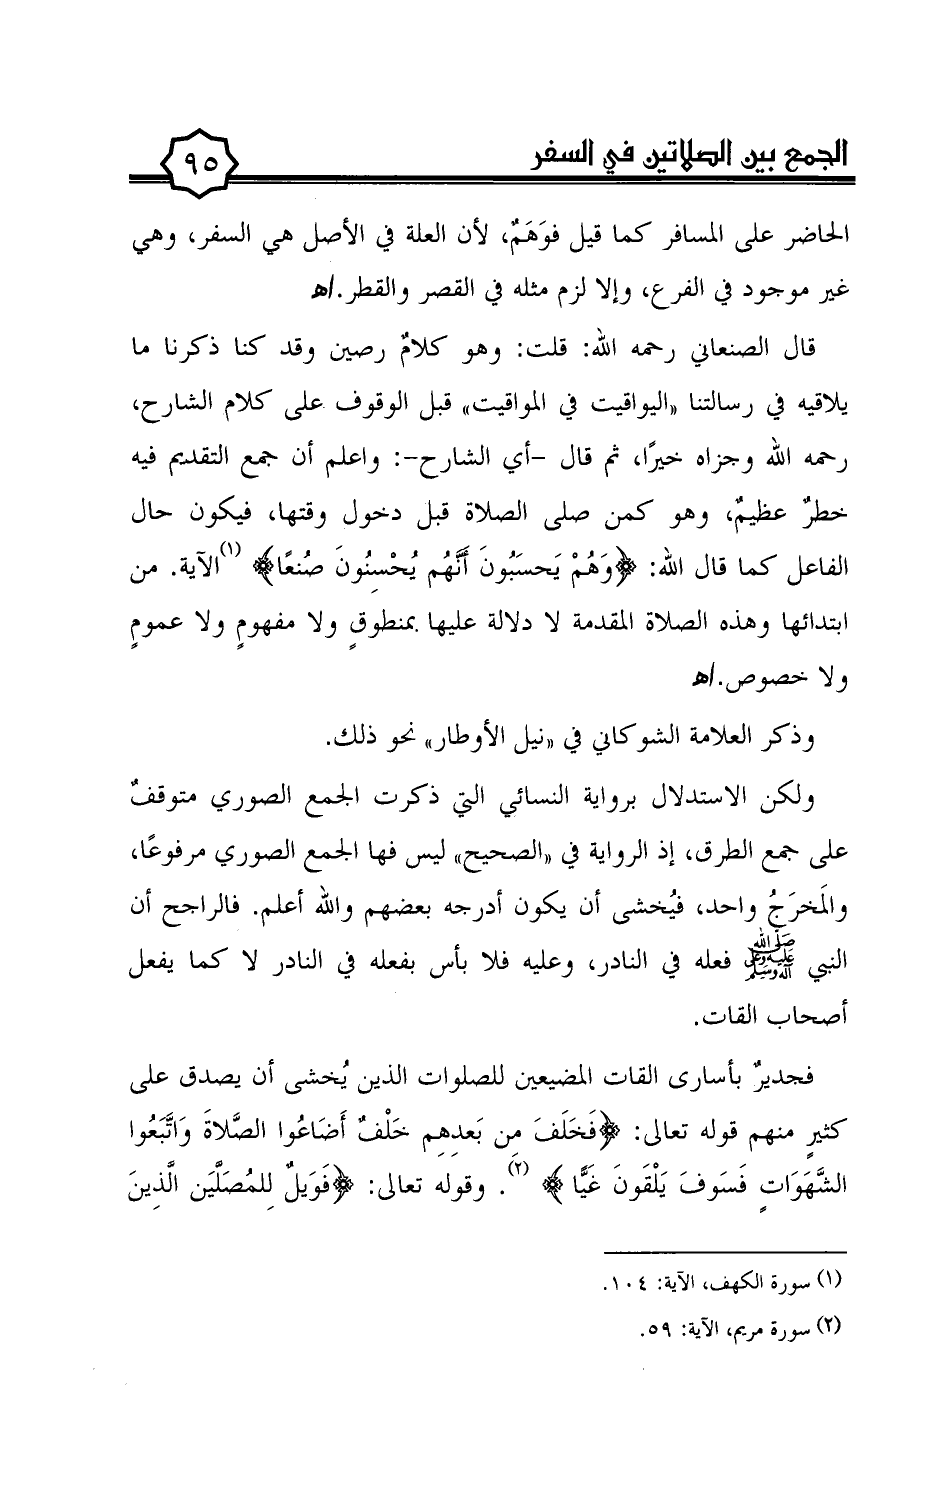 الجمع بين الصلاتين في السفر
٩٥
الحاضر على المسافر كما قيل فوَهَمٌ، لأن العلة في الأصل هي السفر، وهي
غير موجود في الفرع، وإلا لزم مثله في القصر والقطر.اهـ
قال الصنعاني رحمه الله: قلت: وهو كلامٌ رصين وقد كنا ذكرنا ما
يلاقيه في رسالتنا «اليواقيت في المواقيت» قبل الوقوف على كلام الشارح،
رحمه الله وجزاه خيرًا، ثم قال -أي الشارح-: واعلم أن جمع التقديم فيه
خطرٌ عظيمٌ، وهو كمن صلى الصلاة قبل دخول وقتها، فيكون حال
الفاعل كما قال الله: ﴿وَهُمْ يَحسَبُونَ أَنَّهُم يُحْسِنُونَ صُنعًا﴾ (١) الآية. من
ابتدائها وهذه الصلاة المقدمة لا دلالة عليها بمنطوقٍ ولا مفهومٍ ولا عمومٍ
ولا خصوص.اهـ
وذكر العلامة الشوكاني في «نيل الأوطار» نحو ذلك.
ولكن الاستدلال برواية النسائي التي ذكرت الجمع الصوري متوقفٌ
على جمع الطرق، إذ الرواية في «الصحيح» ليس فها الجمع الصوري مرفوعًا،
والمَخرَجُ واحد، فيُخشى أن يكون أدرجه بعضهم والله أعلم. فالراجح أن
النبي صلى الله عليه وعلى آله وسلم فعله في النادر، وعليه فلا بأس بفعله في النادر لا كما يفعل
أصحاب القات.
فجديرٌ بأسارى القات المضيعين للصلوات الذين يُخشى أن يصدق على
كثيرٍ منهم قوله تعالى: ﴿فَخَلَفَ مِن بَعدِهِم خَلْفٌ أَضَاعُوا الصَّلاةَ وَاتَّبَعُوا
الشَّهَوَاتِ فَسَوفَ يَلْقَونَ غَيًّا﴾ (٢). وقوله تعالى: ﴿فَوَيلٌ لِلمُصَلَّيَن الَّذِينَ
(١) سورة الكهف، الآية: ١٠٤.
(٢) سورة مريم، الآية: ٥٩.